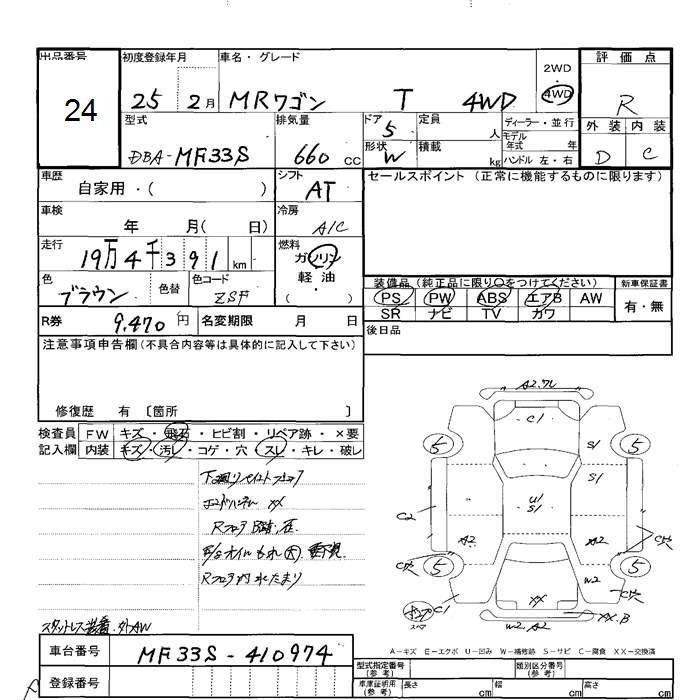 出品番号 初度登録年月 車名・グレード 2WD 評価点
24 25 2月 MRワゴン T 4WD 4WD R
型式 排気量 ドア 定員 ディーラー・並行 外装 内装
DBA-MF33S 660 cc 5 人 モデル年式 年 D C
形状 W 積載 kg ハンドル 左・右
車歴 自家用・( ) シフト AT セールスポイント(正常に機能するものに限ります)
車検 年 月( 日) 冷房 A/C
走行 19万4千391 km 燃料 ガソリン
軽油
( )
色 ブラウン 色替 色コード ZSF 装備品(純正品に限り○をつけてください) 新車保証書
PS PW ABS エアB AW 有・無
SR ナビ TV カワ
R券 9,470円 名変期限 月 日 後日品
注意事項申告欄(不具合内容等は具体的に記入して下さい)
修復歴 有 〔箇所 〕
検査員 FW キズ・飛石・ヒビ割・リペア跡・×要
記入欄 内装 キズ・汚レ・コゲ・穴・スレ・キレ・破レ
XX
Rフロア
Rフロア内水たまり
スタットレス装着.外AW
A2.ワレ
C1
5 5
S1
S1
U1
S1
C2
A2 A2
5 5
W2
C1 XX XX.B
W2.A2
A-キズ E-エクボ U-凹み W-補修跡 S-サビ C-腐食 XX-交換済
車台番号 MF33S-410974
型式指定番号(参考) 類別区分番号(参考)
登録番号 車庫証明用(参考) 長さ cm 幅 cm 高さ cm